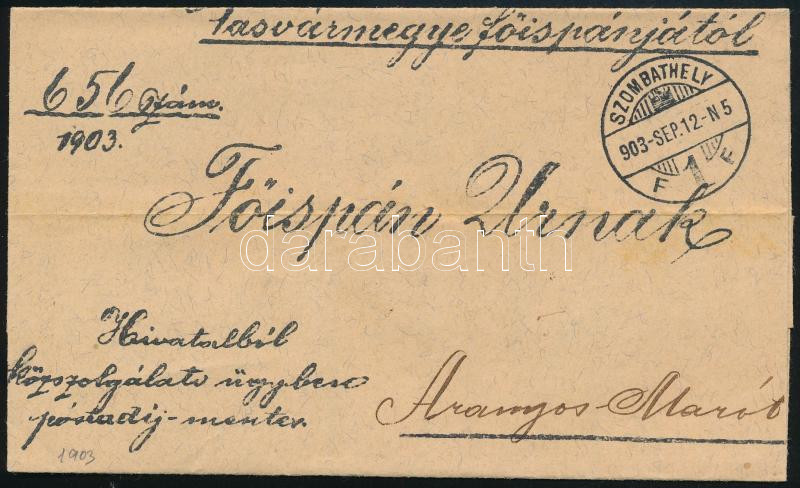 Vasvármegye főispánjától
656 szám.
1903.
SZOMBATHELY
903-SEP.12-N5
F 1 F
Főispán Urnak
darabanth
Hivatalból
közszolgálati ügyben
póstadíj-mentes.
Aranyos-Marót
1903